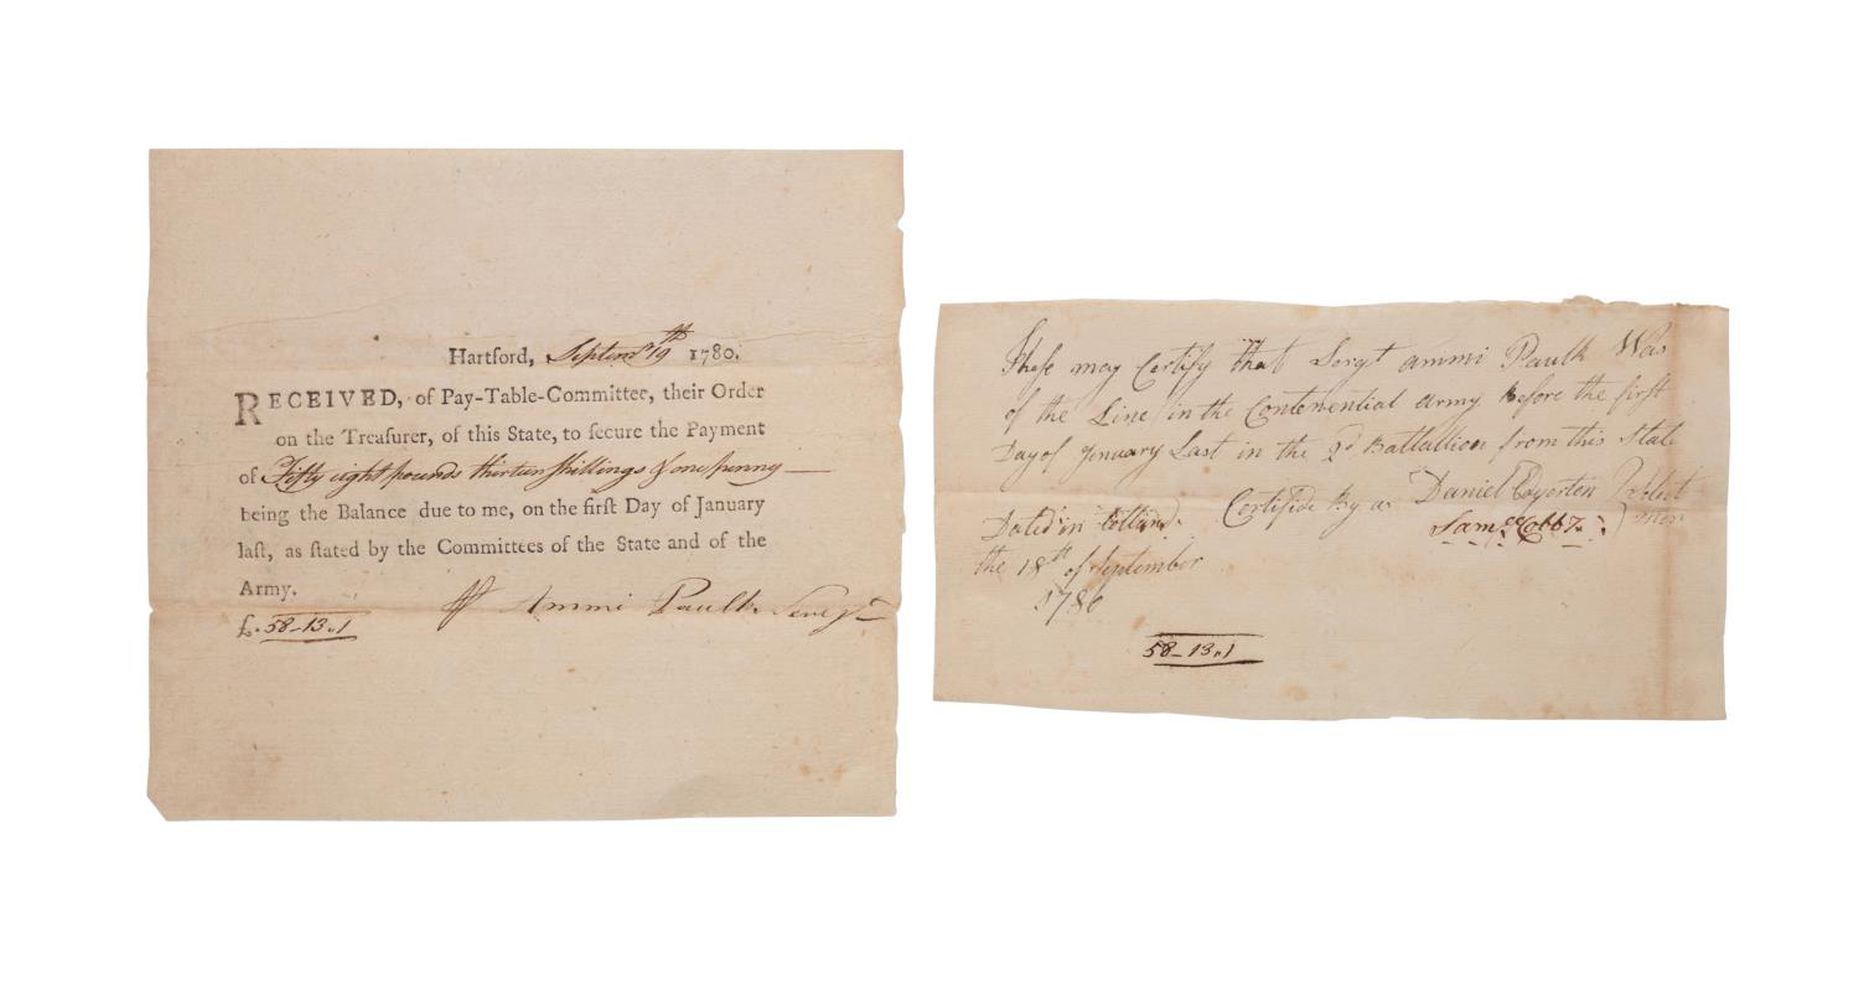 Hartford, Septemr 19th 1780.
RECEIVED, of Pay-Table-Committee, their Order
on the Treaſurer, of this State, to ſecure the Payment
of Fifty eight pounds thirteen ſhillings & one penny —
being the Balance due to me, on the firſt Day of January
laſt, as ſtated by the Committees of the State and of the
Army.
Ammi Paulk Seregt
£. 58-13.,1
Theſe may Certify that Sergt ammi Paulk Was
of the Line in the Contenential army Before the firſt
Day of Jenuary Last in the 2d Battallion from this State
Certifide By us Daniel Edgerton } Select
Saml Cobb } men
Dated in Tolland
the 18th of September
1780
58-13.,1